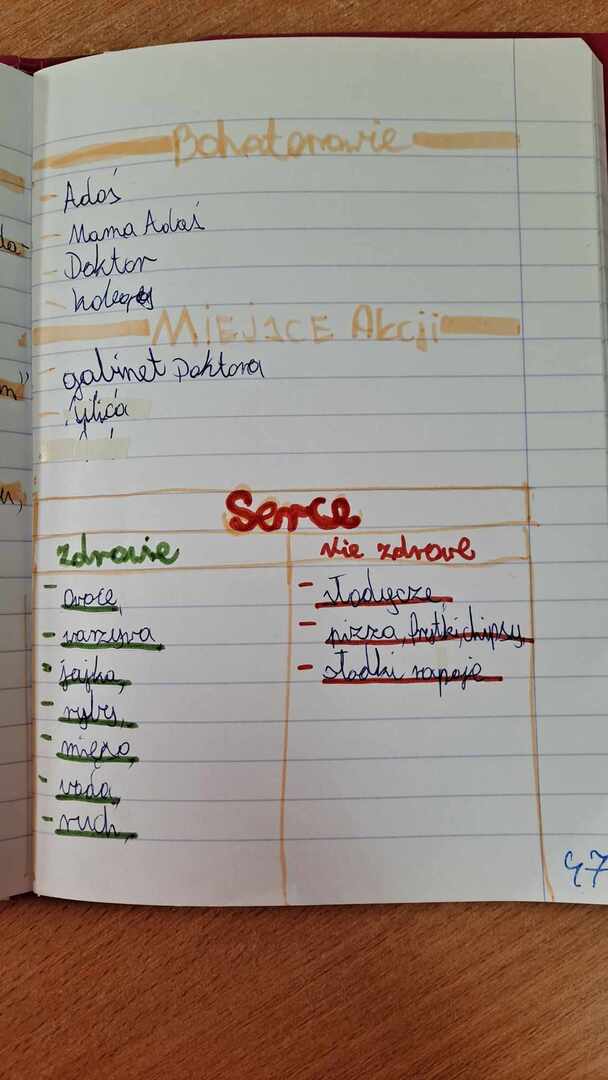 Bohaterowie
- Adoś
- Mama Adaś
- Doktor
- koledzy
MIEJSCE Akcji
- gabinet Doktora
- ulica
Serce
zdrowie
Nie zdrowe
- owoce,
- warzywa
- jajka,
- ryby,
- mięso,
- woda,
- ruch,
- słodycze,
- pizza, frytki, chipsy,
- słodki napoje
47